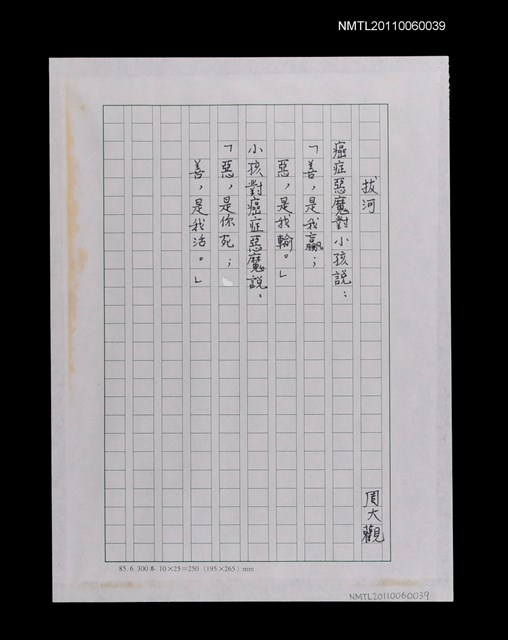 NMTL20110060039
拔河
周大觀
癌症惡魔對小孩說：
「善，是我贏；
惡，是我輸。」
小孩對癌症惡魔說：
「惡，是你死；
善，是我活。」
85. 6. 300本 10×25=250 (195×265) mm
NMTL20110060039